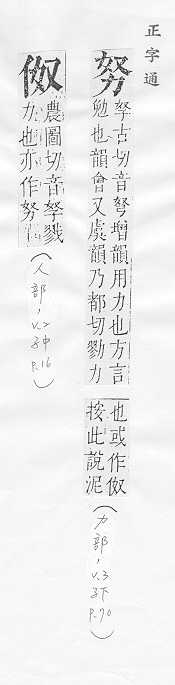 正字通
努
孥古切音弩增韻用力也方言
勉也韻會又虞韻乃都切勠力
也或作伮
按此說泥
(力部,v.3
子下
p.70)
伮
農圖切音孥戮
力也亦作努
(人部,v.2
子中
p.16)